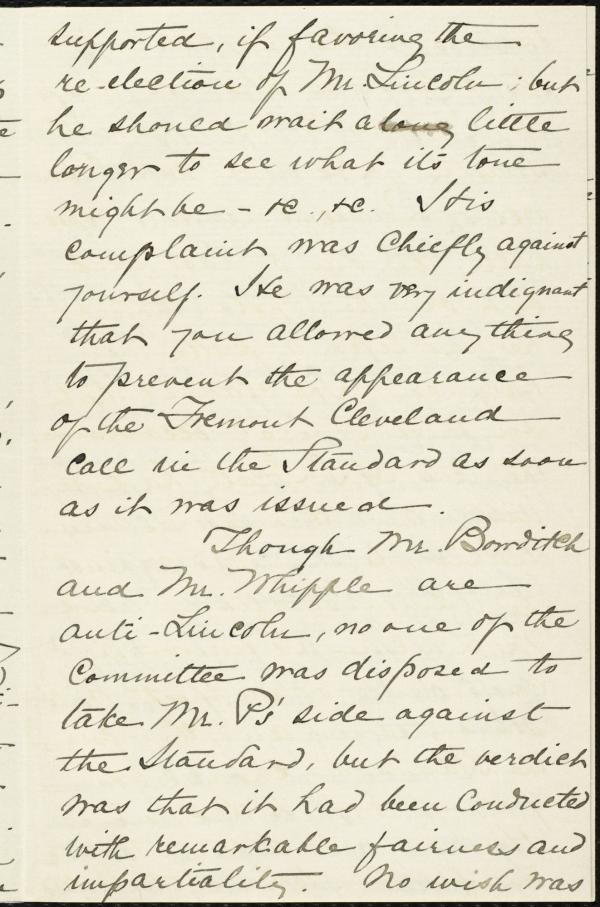 supported, if favoring the
re-election of Mr. Lincoln; but
he should wait a long little
longer to see what its tone
might be - &c., &c. His
complaint was chiefly against
yourself. He was very indignant
that you allowed anything
to prevent the appearance
of the Fremont Cleveland
call in the Standard as soon
as it was issued.
Though Mr. Bowditch
and Mr. Whipple are
anti-Lincoln, no one of the
Committee was disposed to
take Mr. P's' side against
the Standard, but the verdict
was that it had been conducted
with remarkable fairness and
impartiality. No wish was